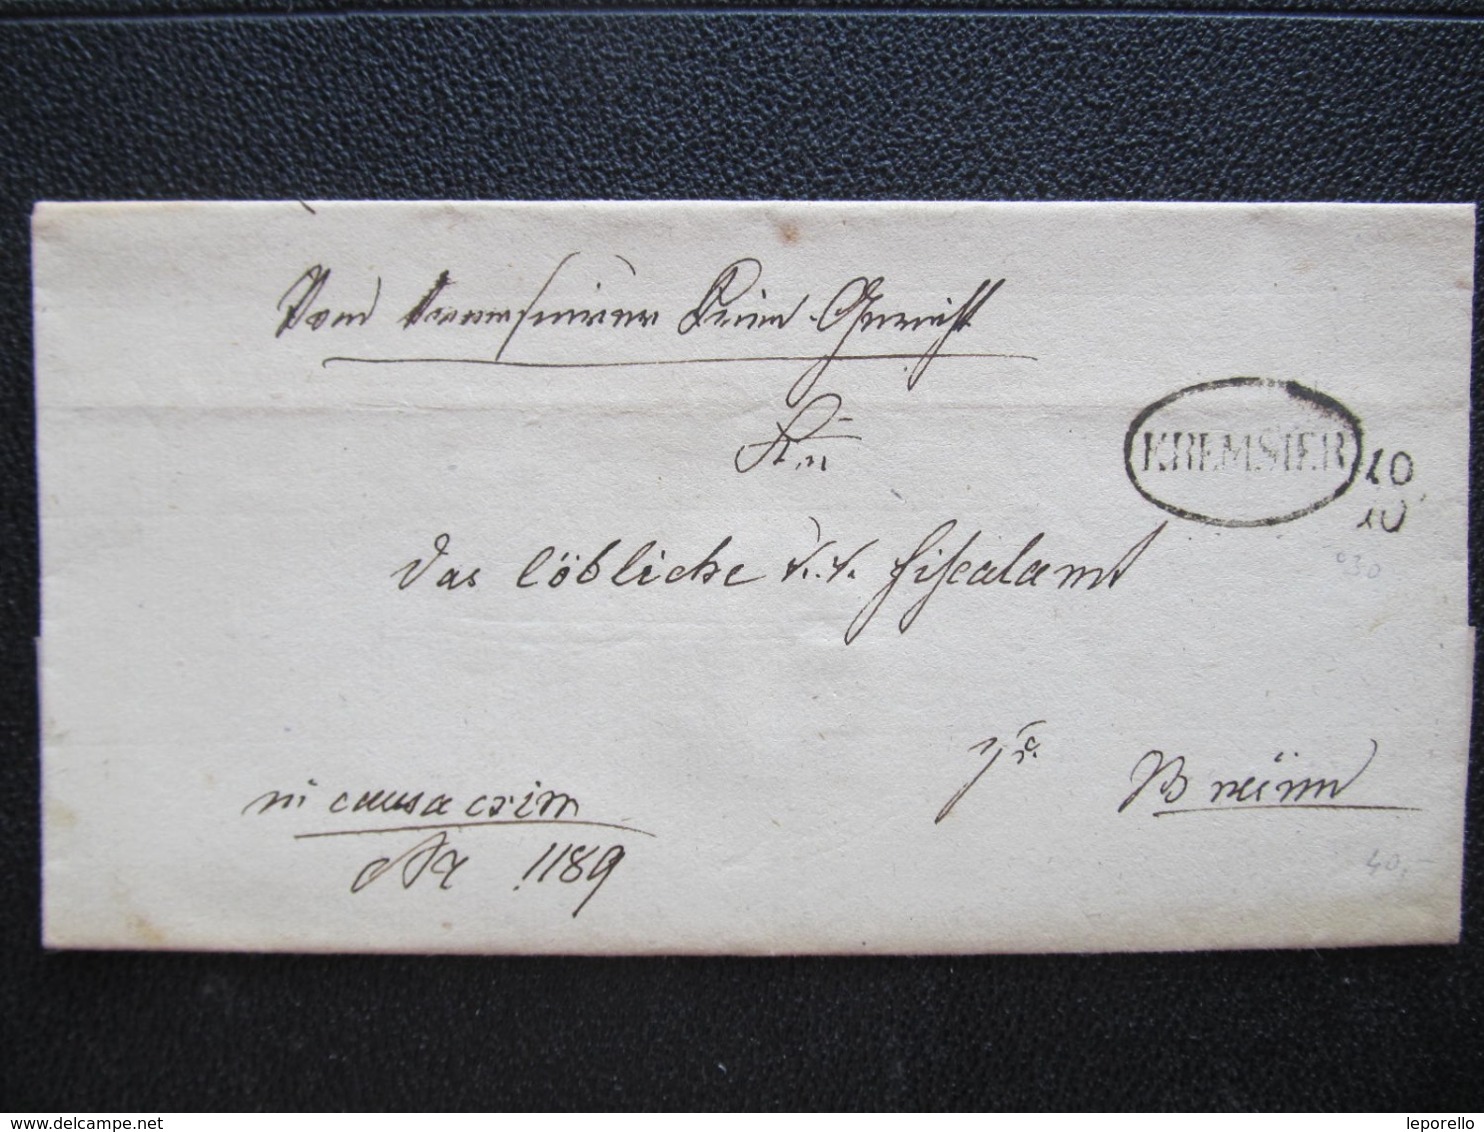 Vom Kremsierer Krim. Gericht
An
KREMSIER
10
10
das löbliche k. k. Fiskalamt
030
zu
Brünn
in causa crim
Nr 1189
40,-
www.delcampe.net
leporello